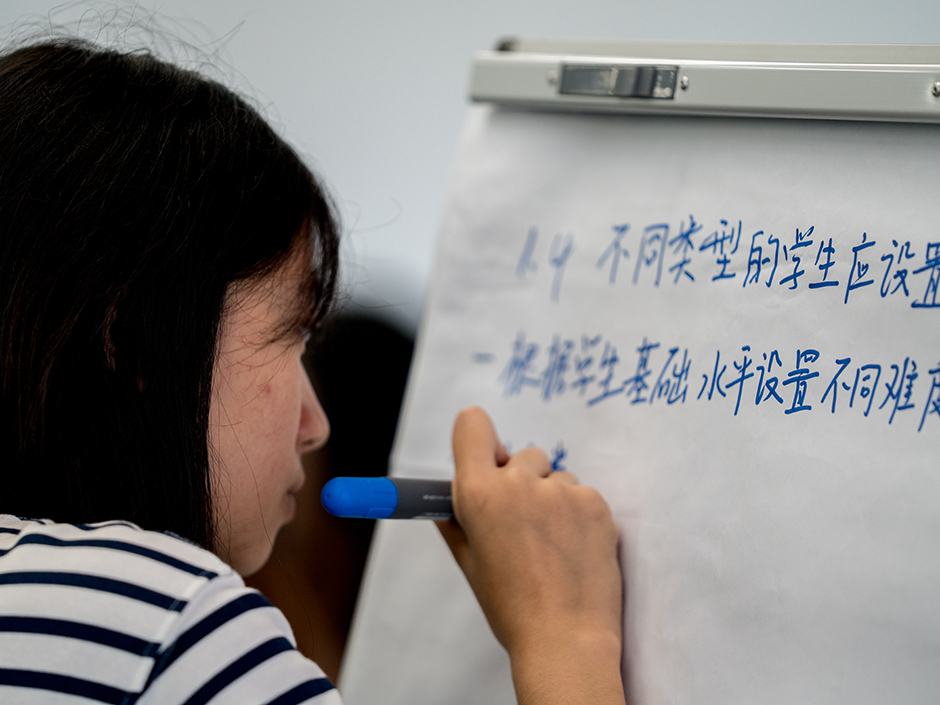 1.4 不同类型的学生应设置
- 根据学生基础水平设置不同难度